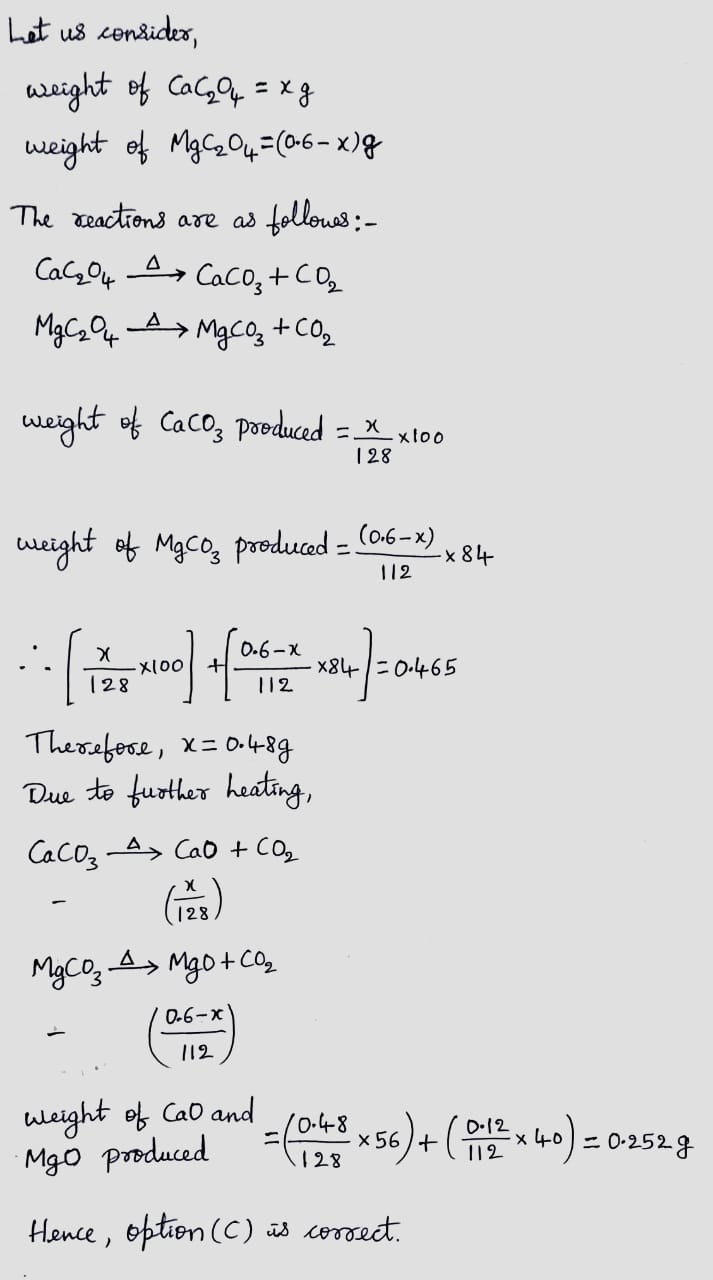 Let us consider,
weight of CaC₂O₄ = x g
weight of MgC₂O₄=(0.6-x)g
The reactions are as follows:-
CaC₂O₄ –Δ→ CaCO₃ + CO₂
MgC₂O₄ –Δ→ MgCO₃ + CO₂
weight of CaCO₃ produced = x/128 ×100
weight of MgCO₃ produced = (0.6-x)/112 × 84
∴ [x/128 ×100] + [0.6-x/112 ×84] = 0.465
Therefore, x = 0.48g
Due to further heating,
CaCO₃ –Δ→ CaO + CO₂
- (x/128)
MgCO₃ –Δ→ MgO + CO₂
- (0.6-x/112)
weight of CaO and MgO produced = (0.48/128 × 56) + (0.12/112 × 40) = 0.252 g
Hence, option (C) is correct.